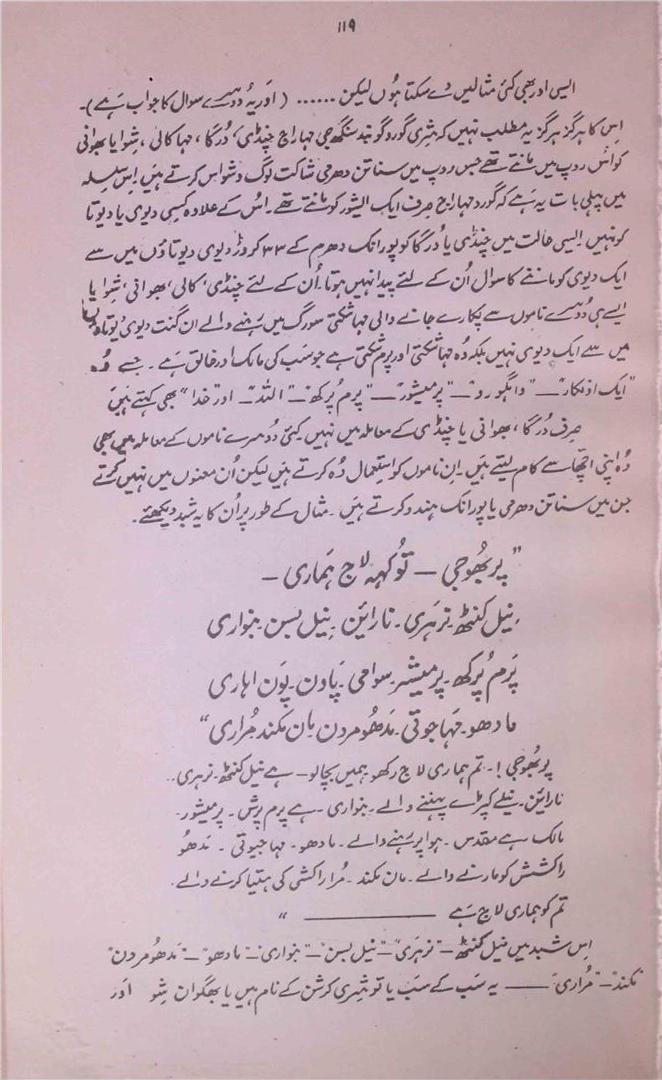 ۱۱۹
ایسی اور بھی کئی مثالیں دے سکتا ہوں لیکن ...... (اور یہ دوسرے سوال کا جواب ہے)۔
اس کا ہرگز ہرگز یہ مطلب نہیں کہ شری گورو گوبند سنگھ جی مہاراج چنڈی، دُرگا، مہا کالی، شِوا یا بھوانی
کو اُس روپ میں مانتے تھے جس روپ میں سناتن دھرمی شاکت لوگ وشواس کرتے ہیں۔ اِس سلسلہ
میں پہلی بات یہ ہے کہ گورو مہاراج صرف ایک ایشور کو مانتے تھے۔ اُس کے علاوہ کسی دیوی یا دیوتا
کو نہیں۔ ایسی حالت میں چنڈی یا دُرگا کو پورانک دھرم کے ۳۳ کروڑ دیوی دیوتاؤں میں سے
ایک دیوی کو ماننے کا سوال اُن کے لئے پیدا نہیں ہوتا۔ اُن کے لئے چنڈی، کالی، بھوانی، شِوا یا
ایسے ہی دُوسرے ناموں سے پکارے جانے والی مہا شکتی سورگ میں رہنے والے اَن گنت دیوی دیوتاؤں
میں سے ایک دیوی نہیں بلکہ وُہ مہا شکتی اور پرم شکتی ہے جو سب کی مالک اور خالق ہے۔ جسے وُہ
"ایک اونکار"۔ "واہگورو"۔ "پرمیشور"۔ "پرم پُرکھ"۔ "اللہ"۔ اور "خدا" بھی کہتے ہیں
صرف دُرگا، بھوانی یا چنڈی کے معاملہ میں نہیں کئی دُوسرے ناموں کے معاملہ میں بھی
وُہ اپنی اِچھا سے کام لیتے ہیں۔ اِن ناموں کو استعمال وُہ کرتے ہیں لیکن اُن معنوں میں نہیں کرتے
جن میں سناتن دھرمی یا پورانک ہندو کرتے ہیں۔ مثال کے طور پر اُن کا یہ شبد دیکھئے۔
"پربھُوجی — تو کہہ لاج ہماری —
نیل کنٹھ۔ نرہری۔ نارائن۔ نیل بسن۔ بنواری
پرم پُرکھ۔ پرمیشر۔ سوامی۔ پاون۔ پَون اہاری
مادھو۔ مہا جوتی۔ مدھُو مردن۔ مان مکند مُراری"
پربھُوجی!۔ تم ہماری لاج رکھو ہمیں بچالو۔ ہے نیل کنٹھ۔ نرہری۔
نارائن۔ نیلے کپڑے پہننے والے۔ بنواری۔ ہے پرم پرش۔ پرمیشور۔
مالک ہے مقدس۔ ہوا پر رہنے والے۔ مادھو۔ مہا جیوتی۔ مدھُو
راکشش کو مارنے والے۔ مان مکند۔ مُر راکشی کی ہتیا کرنے والے۔
تم کو ہماری لاج ہے ——— "
اِس شبد میں نیل کنٹھ۔ "نرہری"۔ "نیل بسن"۔ "بنواری"۔ "مادھو"۔ "مدھُو مردن"
"مکند"۔ "مُراری" —— یہ سب کے سب یا تو شری کرشن کے نام ہیں یا بھگوان شِو اور